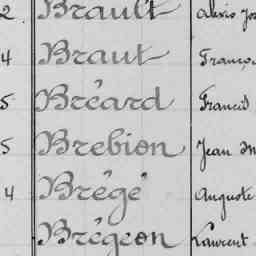 2 Brault Alexis Jos
4 Braut Franço
5 Bréard Francis
5 Brebion Jean M
4 Brégé Auguste
Brégeon Laurent